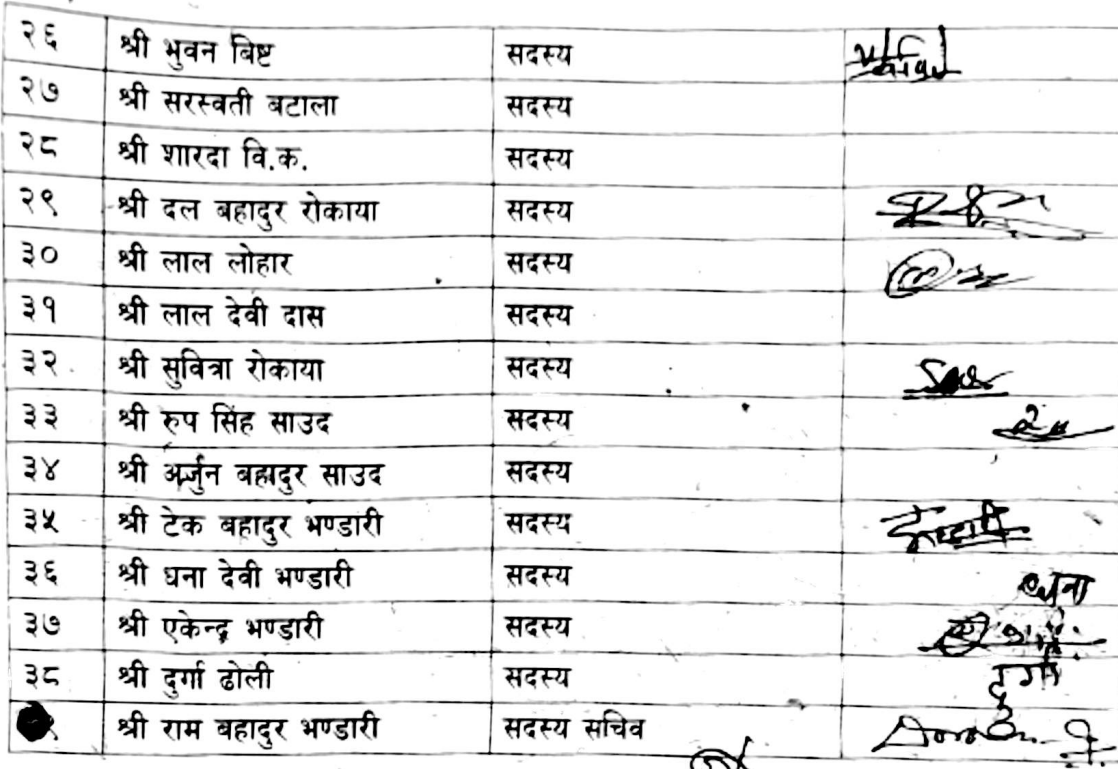 २६ श्री भुवन बिष्ट सदस्य
२७ श्री सरस्वती बटाला सदस्य
२८ श्री शारदा वि.क. सदस्य
२९ श्री दल बहादुर रोकाया सदस्य
३० श्री लाल लोहार सदस्य
३१ श्री लाल देवी दास सदस्य
३२ श्री सुवित्रा रोकाया सदस्य
३३ श्री रुप सिंह साउद सदस्य
३४ श्री अर्जुन बहादुर साउद सदस्य
३५ श्री टेक बहादुर भण्डारी सदस्य
३६ श्री धना देवी भण्डारी सदस्य धना
३७ श्री एकेन्द्र भण्डारी सदस्य
३८ श्री दुर्गा ढोली सदस्य दुर्गा
श्री राम बहादुर भण्डारी सदस्य सचिव